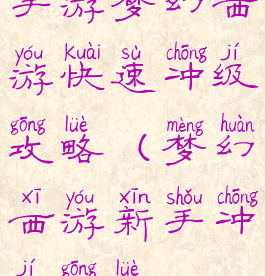 手游梦幻西
yóu kuài sù chōng jí
游快速冲级
gōng lüè mèng huàn
攻略（梦幻
xī yóu xīn shǒu chōng
西游新手冲
jí gōng lüè